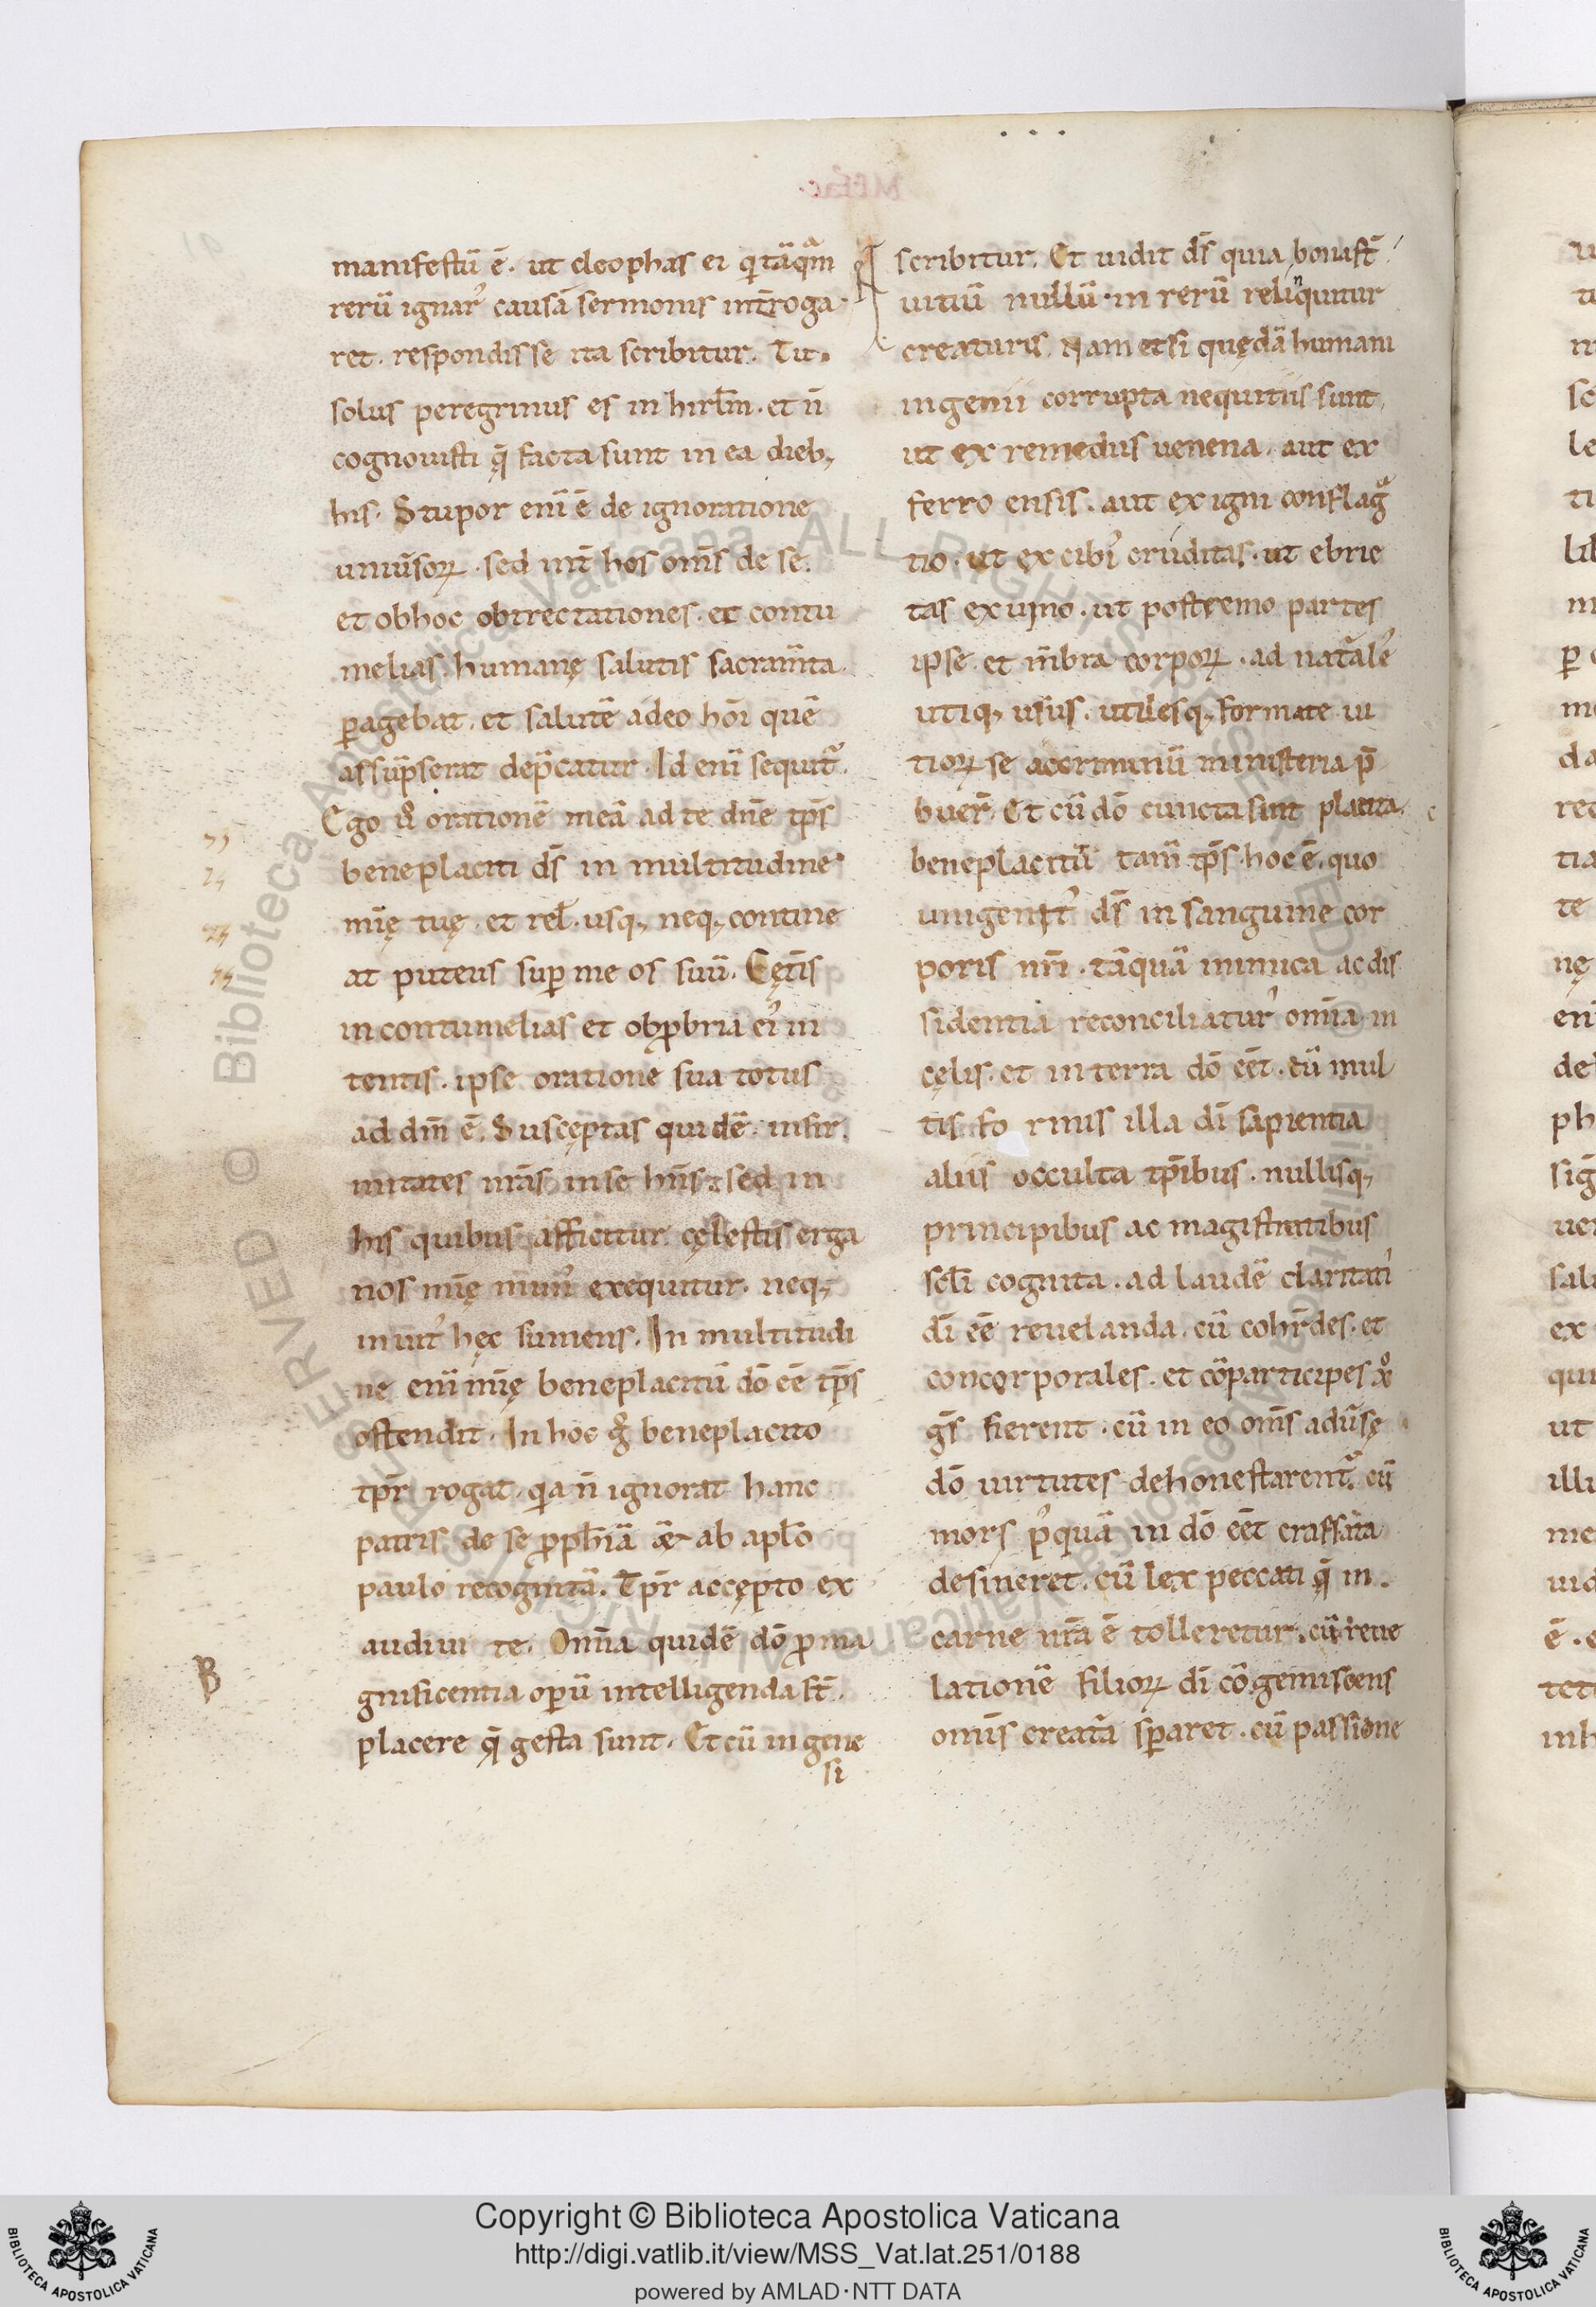 manifestũ ẽ. ut cleophas ei q tãqm
rerũ ignar᾽ causã sermonis int̃roga
ret. respondisse ita scribitur. Tu
solus peregrinus es in hirl̃m. et ñ
cognouisti q̃ facta sunt in ea dieb;
his. Stupor enĩ ẽ de ignoratione
uniũsoꝝ. sed int̃ hos om̃s de se
et obhoc obtrectationes. et contu
melias. humanę salutis sacram̃ta
ꝑagebat. et salutẽ adeo hõi quẽ
assũpserat dep̃catur. Id enĩ sequit᷑.
Ego ũ orationẽ meã ad te dñe tp̃s
beneplaciti dš in multitudine
mĩę tuę. et rel̃. usq; neq; contine
at puteus suꝑ me os suũ. Cęt̃is
in contumelias et obꝓbria ei᾽ in
tentis. ipse oratione sua totus
ad dm̃ ẽ. Suscęptas quidẽ infir
mitates nr̃as in se hñs. sed in
his quibus afficitur cęlestis erga
nos mĩę mun᾽ exequitur. neq;
inuit᾽ hęc sumens. In multitudi
ne enĩ mĩę beneplacitũ dõ eẽ tp̃s
ostendit. In hoc g̊ beneplacito
tp̃r rogat. qia ñ ignorat hanc
patris de se ꝓph̃iã & ab apl̃o
paulo recognitã. Tp̃r accępto ex
audiui te. Omĩa quidẽ dõ ꝓ ma
gnificentia oꝑũ intelligenda st̃
placere q̃ gesta sunt. Et cũ in gene
si
B
scribitur. Et uidit dš quia bona st̃
uitiũ nullũ in rerũ relinquitur
creaturis. Nam etsi quędã humani
ingenii corrupta nequitiis sunt
ut ex remediis uenena. aut ex
ferro ensis. aut ex igni conflagᵃ
tio. ut ex cib᾽ cruditas. ut ebrie
tas ex uino. ut postremo partes
ipse et m̃bra corpoꝝ. ad nat̃ale᾽
utiq; usus. utilesq; formate ui
tioꝝ se ac criminũ ministeria p̃
buer̃. Et cũ dõ cuncta sint placita.
beneplacitũ tam̃ tp̃s hoc ẽ. quo
unigenit᾽ dš in sanguine cor
poris nr̃i. tãquã inimica ac dis
sidentia reconciliatur᾽ omĩa in
cęlis. et in terra dõ eẽt. cũ mul
tis fo rmis illa dĩ sapientia
aliis occulta tp̃ibus. nullisq;
principibus ac magistratibus
scl̃i cognita. ad laudẽ claritati᾽
dĩ eẽ reuelanda. cũ cohr̃des. et
concorporales. et cõparticipes xp̊
g̃s fierent. cũ in eo om̃s adũsę
dõ uirtutes dehonestarent᷑. cũ
mors p᾽quã in dõ eẽt crassata
desineret. cũ lex peccati q̃ in
carne nr̃a ẽ tolleretur. cũ reue
lationẽ filioꝝ dĩ cõgemiscens
omĩs creat̃a sꝑaret. cũ passione
Copyright © Biblioteca Apostolica Vaticana
http://digi.vatlib.it/view/MSS_Vat.lat.251/0188
powered by AMLAD·NTT DATA
BIBLIOTECA APOSTOLICA VATICANA
BIBLIOTECA APOSTOLICA VATICANA